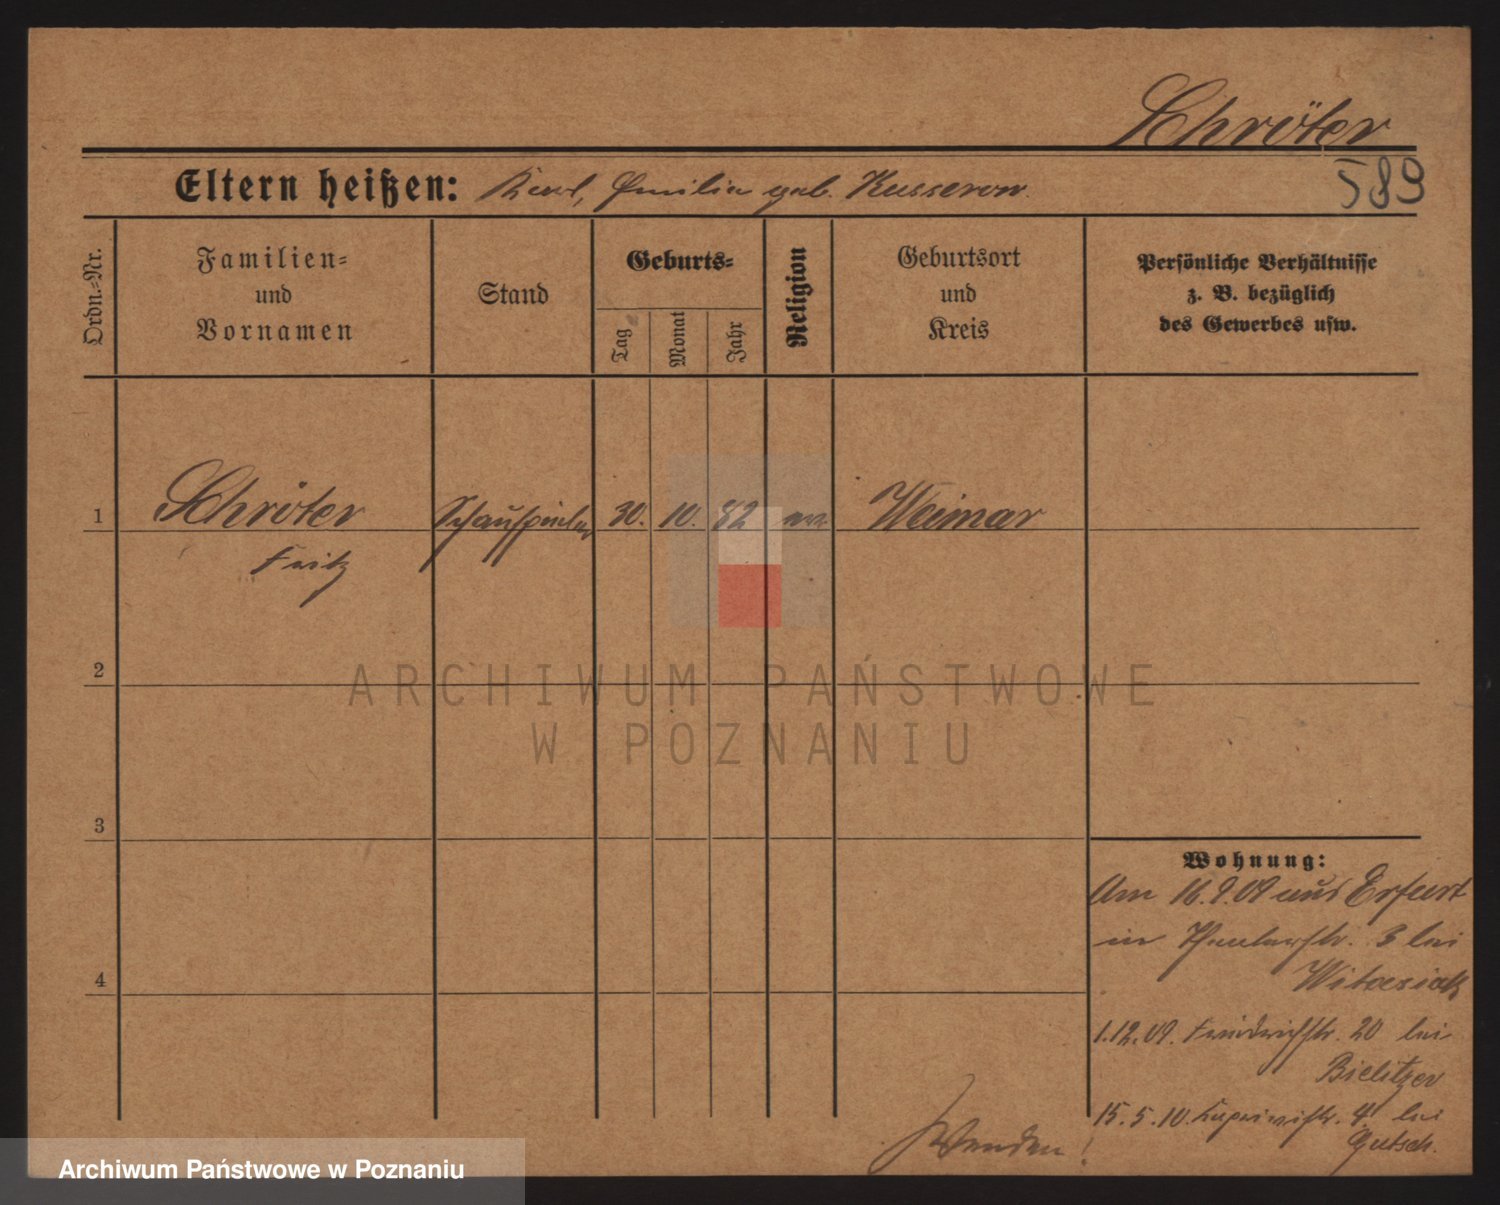 Schröter
589
Eltern heißen: Karl, Emilie geb. Kusserow.
Ordn.-Nr.
Familien-
und
Vornamen
Stand
Geburts-
Tag
Monat
Jahr
Religion
Geburtsort
und
Kreis
Persönliche Verhältnisse
z. B. bezüglich
des Gewerbes usw.
1
Schröter
Schauspieler
30.
10.
82
Weimar
Fritz
2
ARCHIWUM PAŃSTWOWE
W POZNANIU
3
Wohnung:
Am 16.9.09 aus Erfurt
in 3 bei
Witasiak
4
1.12.09. Friedrichstr. 20 bei
Bielitzer
15.5.10. 4 bei
Gutsch.
Wenden!
Archiwum Państwowe w Poznaniu